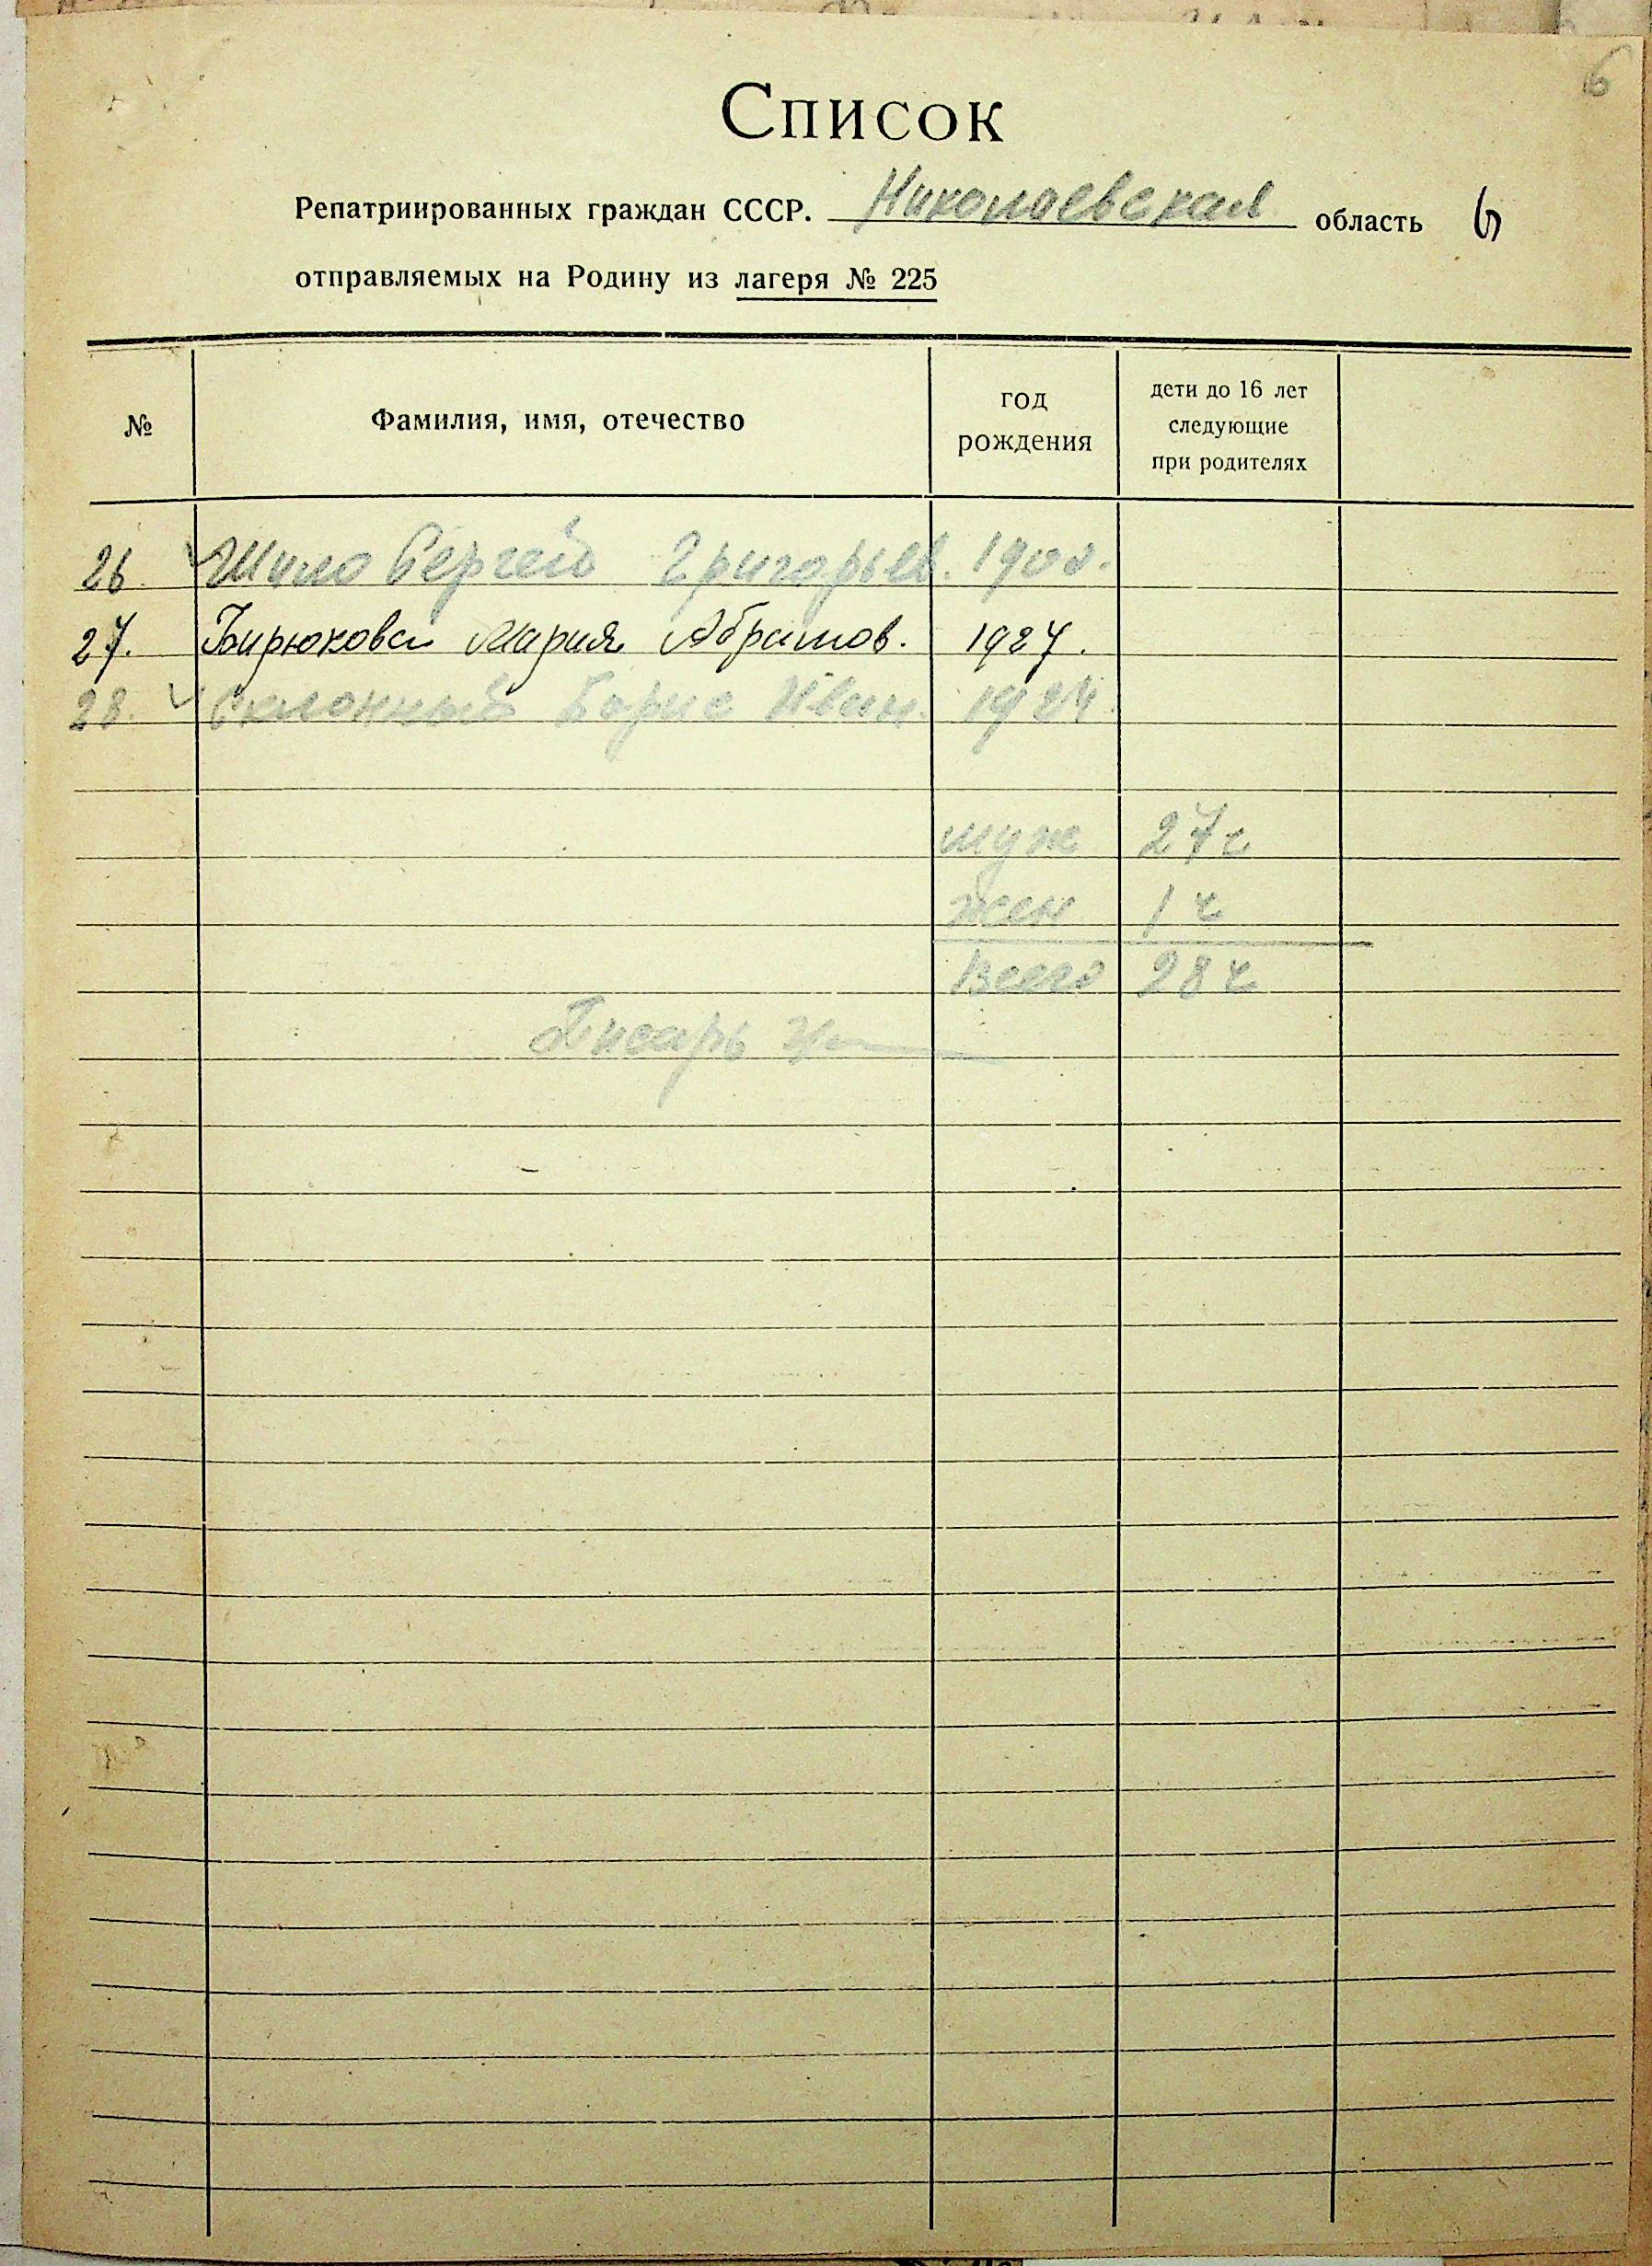 6
Список
Репатриированных граждан СССР. Николаевская область 6
отправляемых на Родину из лагеря № 225
№ Фамилия, имя, отчество год рождения дети до 16 лет следующие при родителях
26. Шило Сергей Григорьев. 1900.
27. Бирюкова Мария Абрамов. 1927.
28. Склонный Борис Иван. 1924.
муж 27 ч
жен 1 ч
Всего 28 ч
Писарь